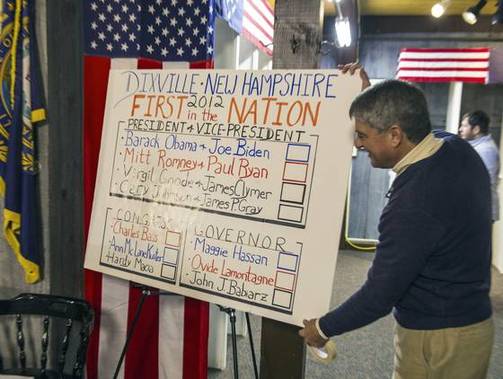 DIXVILLE • NEW HAMPSHIRE
FIRST 2012 in the NATION
PRESIDENT & VICE-PRESIDENT
Barack Obama & Joe Biden
Mitt Romney & Paul Ryan
Virgil Goode & James Clymer
Gary Johnson & James P. Gray
CONGRESS
Charles Bass
Ann McLane Kuster
Hardy Macia
GOVERNOR
Maggie Hassan
Ovide Lamontagne
John J. Babiarz